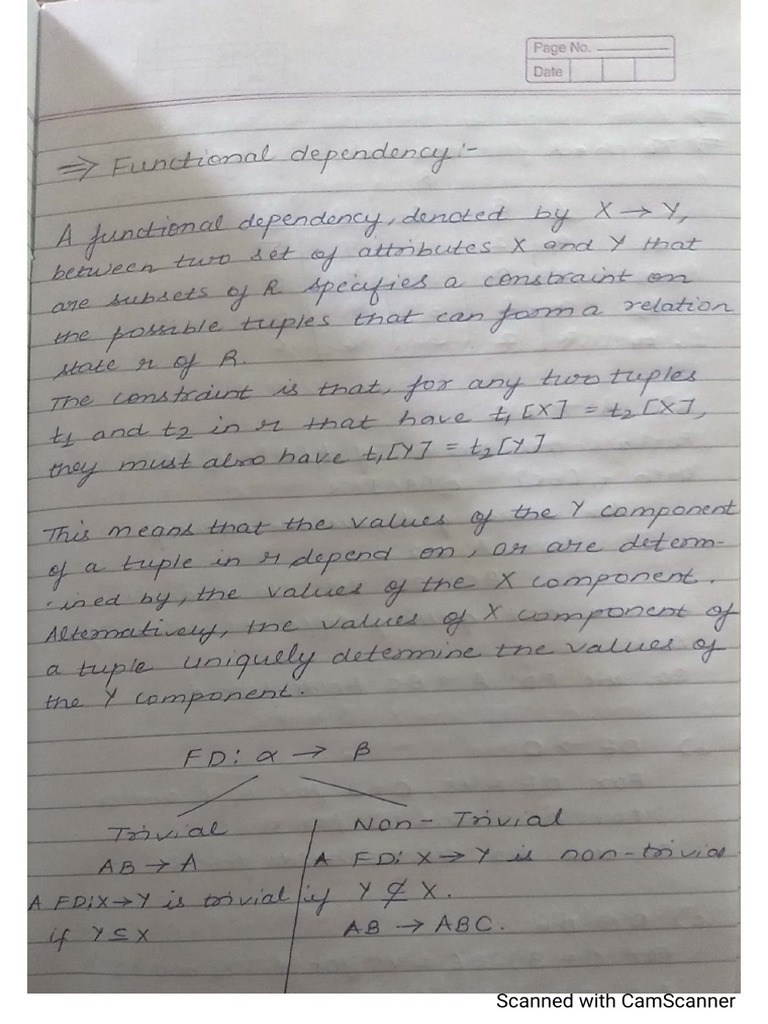 Page No.
Date
⇒ Functional dependency:-
A functional dependency, denoted by X → Y,
between two set of attributes X and Y that
are subsets of R specifies a constraint on
the possible tuples that can form a relation
state r of R.
The constraint is that, for any two tuples
t1 and t2 in r that have t1[X] = t2[X],
they must also have t1[Y] = t2[Y]
This means that the values of the Y component
of a tuple in r depend on, or are determ-
-ined by, the values of the X component.
Alternatively, the values of X component of
a tuple uniquely determine the values of
the Y component.
FD: α → β
Trivial
AB → A
A FD: X → Y is trivial
if Y ⊆ X
Non-Trivial
A FD: X → Y is non-trivial
if Y ⊄ X.
AB → ABC.
Scanned with CamScanner